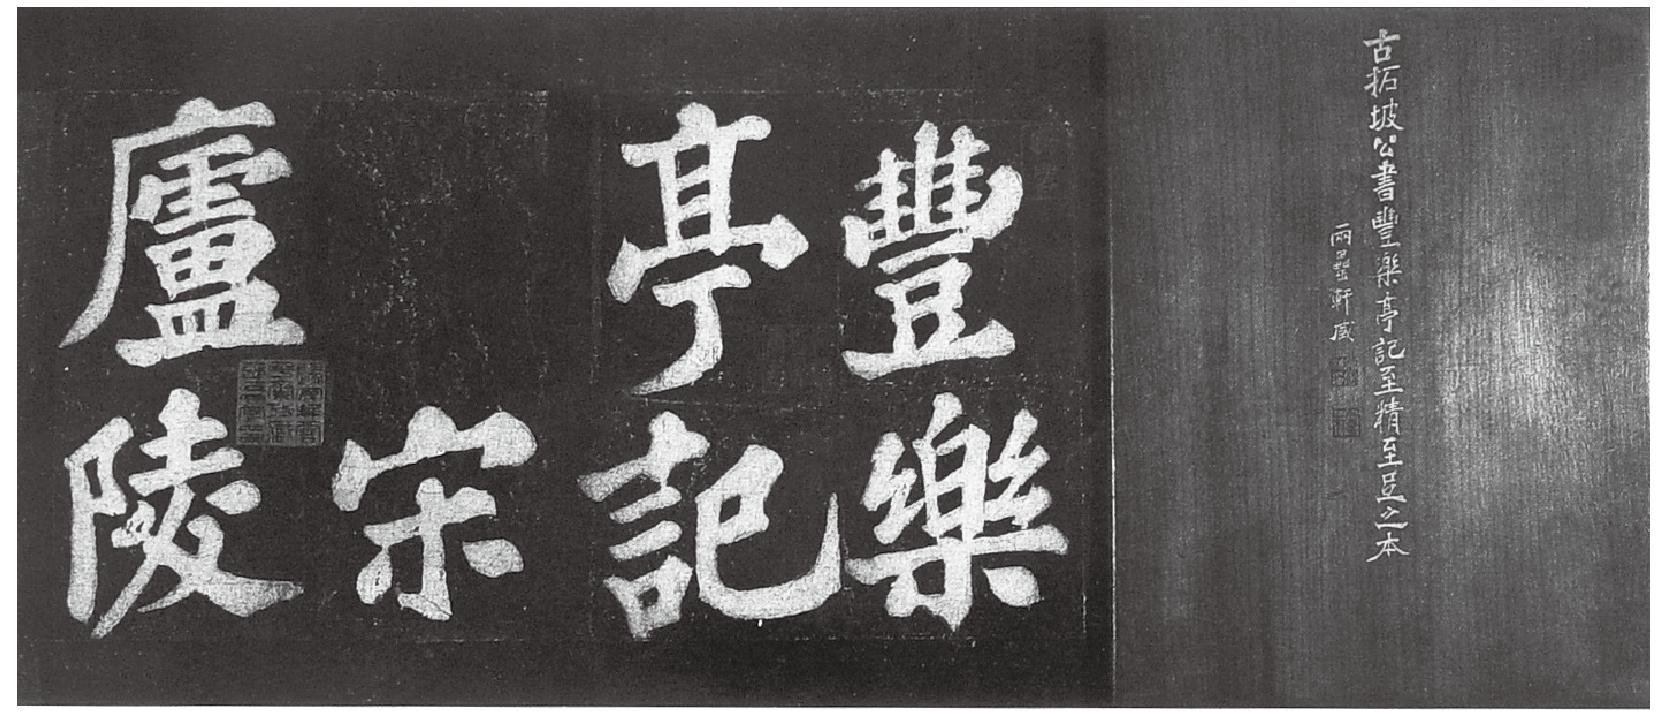 古拓坡公書豐樂亭記至精至足之本
兩罍軒藏
豐樂
亭記
宋
廬陵